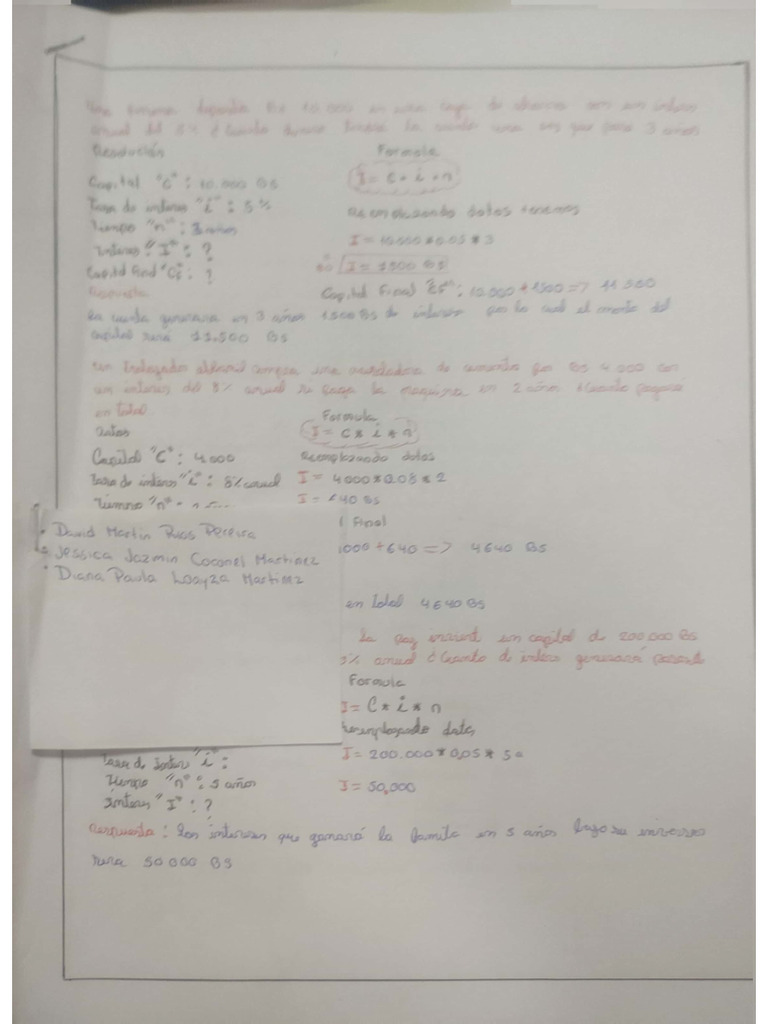 Una persona deposita Bs 10.000 en una caja de ahorros con un interes
anual del 5% ¿Cuanto dinero tendrá la cuenta una vez que pase 3 años
Resolución
Formula
Capital "C": 10.000 Bs
I = C * i * n
Tasa de interes "i": 5%
Reemplazando datos tenemos
Tiempo "n": 3 años
I = 10.000 * 0.05 * 3
Interes "I": ?
I = 1500 Bs
Capital final "Cf": ?
Capital Final : 10.000 + 1500 => 11 500
Respuesta
La cuenta generara en 3 años 1.500 Bs de interes por lo cual el monto del
capital sera 11.500 Bs
Un trabajador albañil compra una de cemento por Bs 4.000 con
un interes del 8% anual si paga la maquina en 2 años ¿Cuanto pagará
en total
Datos
Formula
I = C * i * n
Capital "C": 4.000
Reemplazando datos
Tasa de interes "i": 8% anual
I = 4000 * 0.08 * 2
Tiempo "n"
I = 640 Bs
Final
000 + 640 => 4640 Bs
• David Martin Rios Pereira
• Jessica Jazmin Coronel Martinez
• Diana Paula Loayza Martinez
en total 4640 Bs
la paz un capital de 200.000 Bs
% anual ¿Cuanto de interes generará
Formula
I = C * i * n
Reemplazado datos
Tasa de Interes "i":
I = 200.000 * 0,05 * 5
Tiempo "n": 5 años
I = 50,000
Interes "I": ?
Respuesta: Los intereses que ganará la familia en 5 años
sera 50 000 Bs